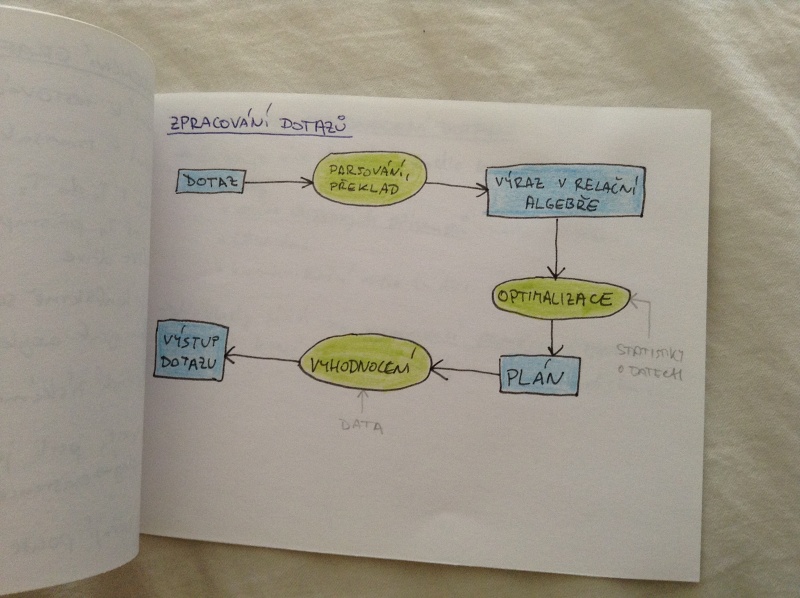 ZPRACOVÁNÍ DOTAZŮ
DOTAZ
PARSOVÁNÍ,
PŘEKLAD
VÝRAZ V RELAČNÍ
ALGEBŘE
OPTIMALIZACE
STATISTIKY
O DATECH
PLÁN
VYHODNOCENÍ
DATA
VÝSTUP
DOTAZU